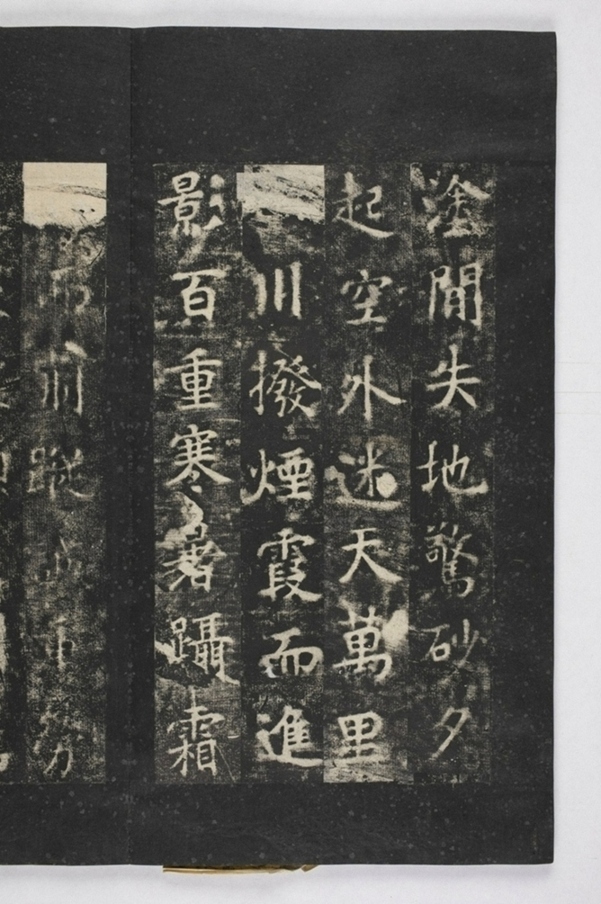 塗間失地驚砂夕
起空外迷天萬里
川撥煙霞而進
影百重寒暑躡霜
而前蹤誠重勞